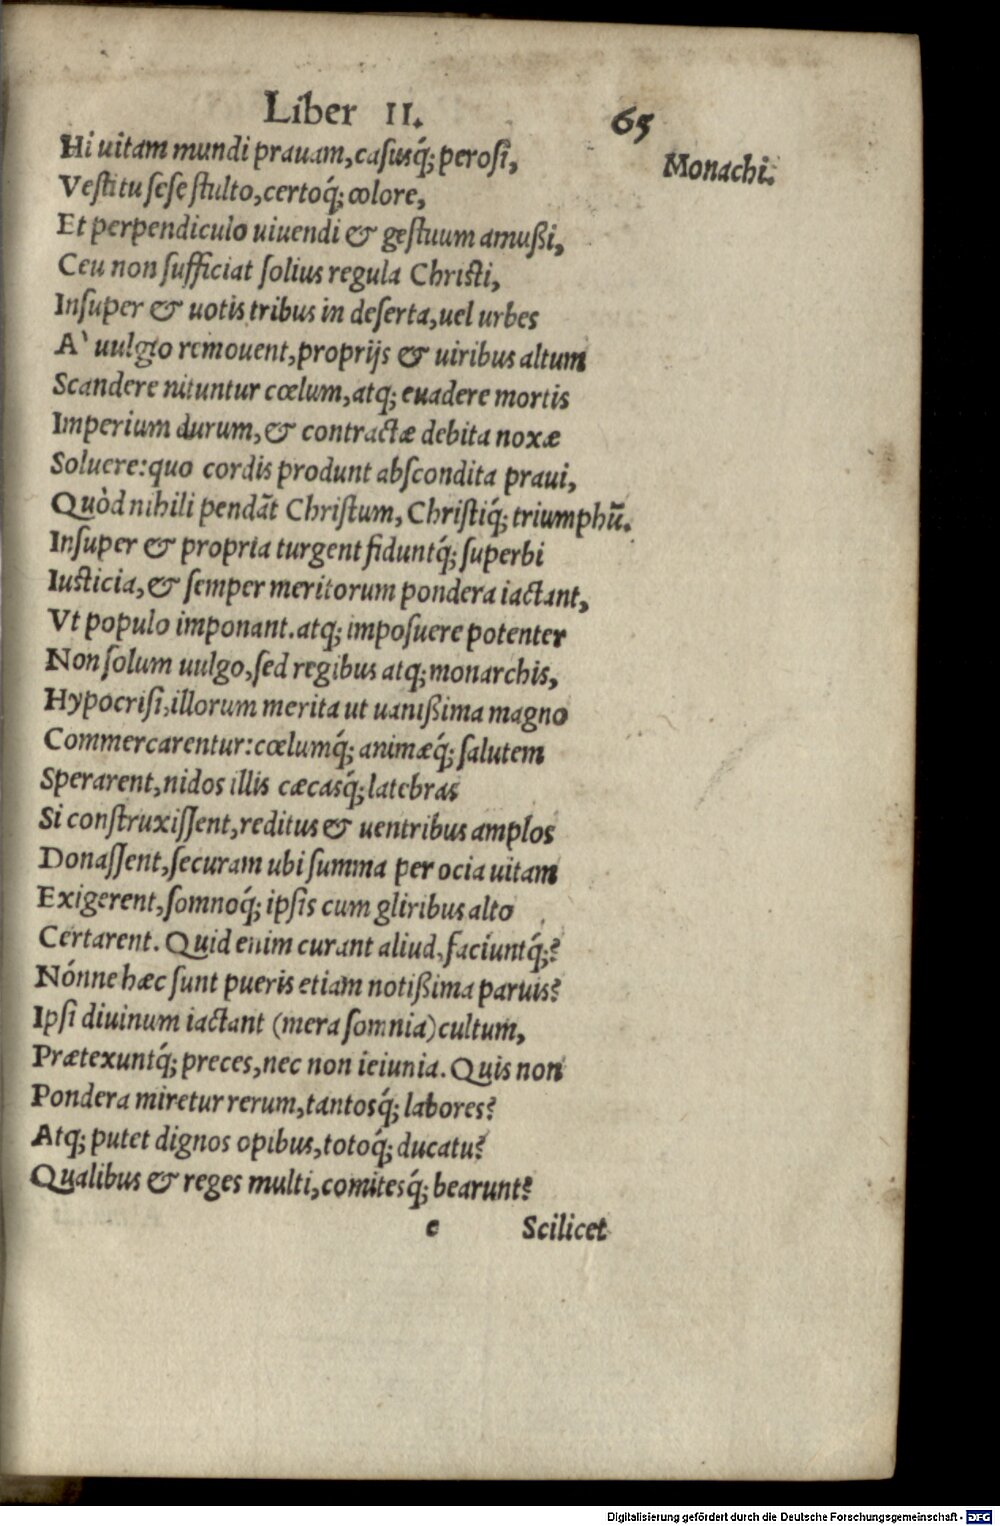 Liber II. 65
Hi uitam mundi prauam, casusq́; perosi,
Monachi.
Vestitu sese stulto, certoq́; colore,
Et perpendiculo uiuendi & gestuum amußi,
Ceu non sufficiat solius regula Christi,
Insuper & uotis tribus in deserta, uel urbes
A` uulgo remouent, proprijs & uiribus altum
Scandere nituntur cœlum, atq; euadere mortis
Imperium durum, & contractæ debita noxæ
Soluere: quo cordis produnt abscondita praui,
Quòd nihili pendãt Christum, Christiq́; triumphũ.
Insuper & propria turgent fiduntq́; superbi
Iusticia, & semper meritorum pondera iactant,
Vt populo imponant. atq; imposuere potenter
Non solum uulgo, sed regibus atq; monarchis,
Hypocrisi, illorum merita ut uanißima magno
Commercarentur: cœlumq́; animæq́; salutem
Sperarent, nidos illis cæcasq́; latebras
Si construxissent, reditus & uentribus amplos
Donassent, securam ubi summa per ocia uitam
Exigerent, somnoq́; ipsis cum gliribus alto
Certarent. Quid enim curant aliud, faciuntq́;?
Nónne hæc sunt pueris etiam notißima paruis?
Ipsi diuinum iactant (mera somnia) cultum,
Prætexuntq́; preces, nec non ieiunia. Quis non
Pondera miretur rerum, tantosq́; labores?
Atq; putet dignos opibus, totoq́; ducatu?
Qualibus & reges multi, comitesq́; bearunt?
e Scilicet
Digitalisierung gefördert durch die Deutsche Forschungsgemeinschaft - DFG